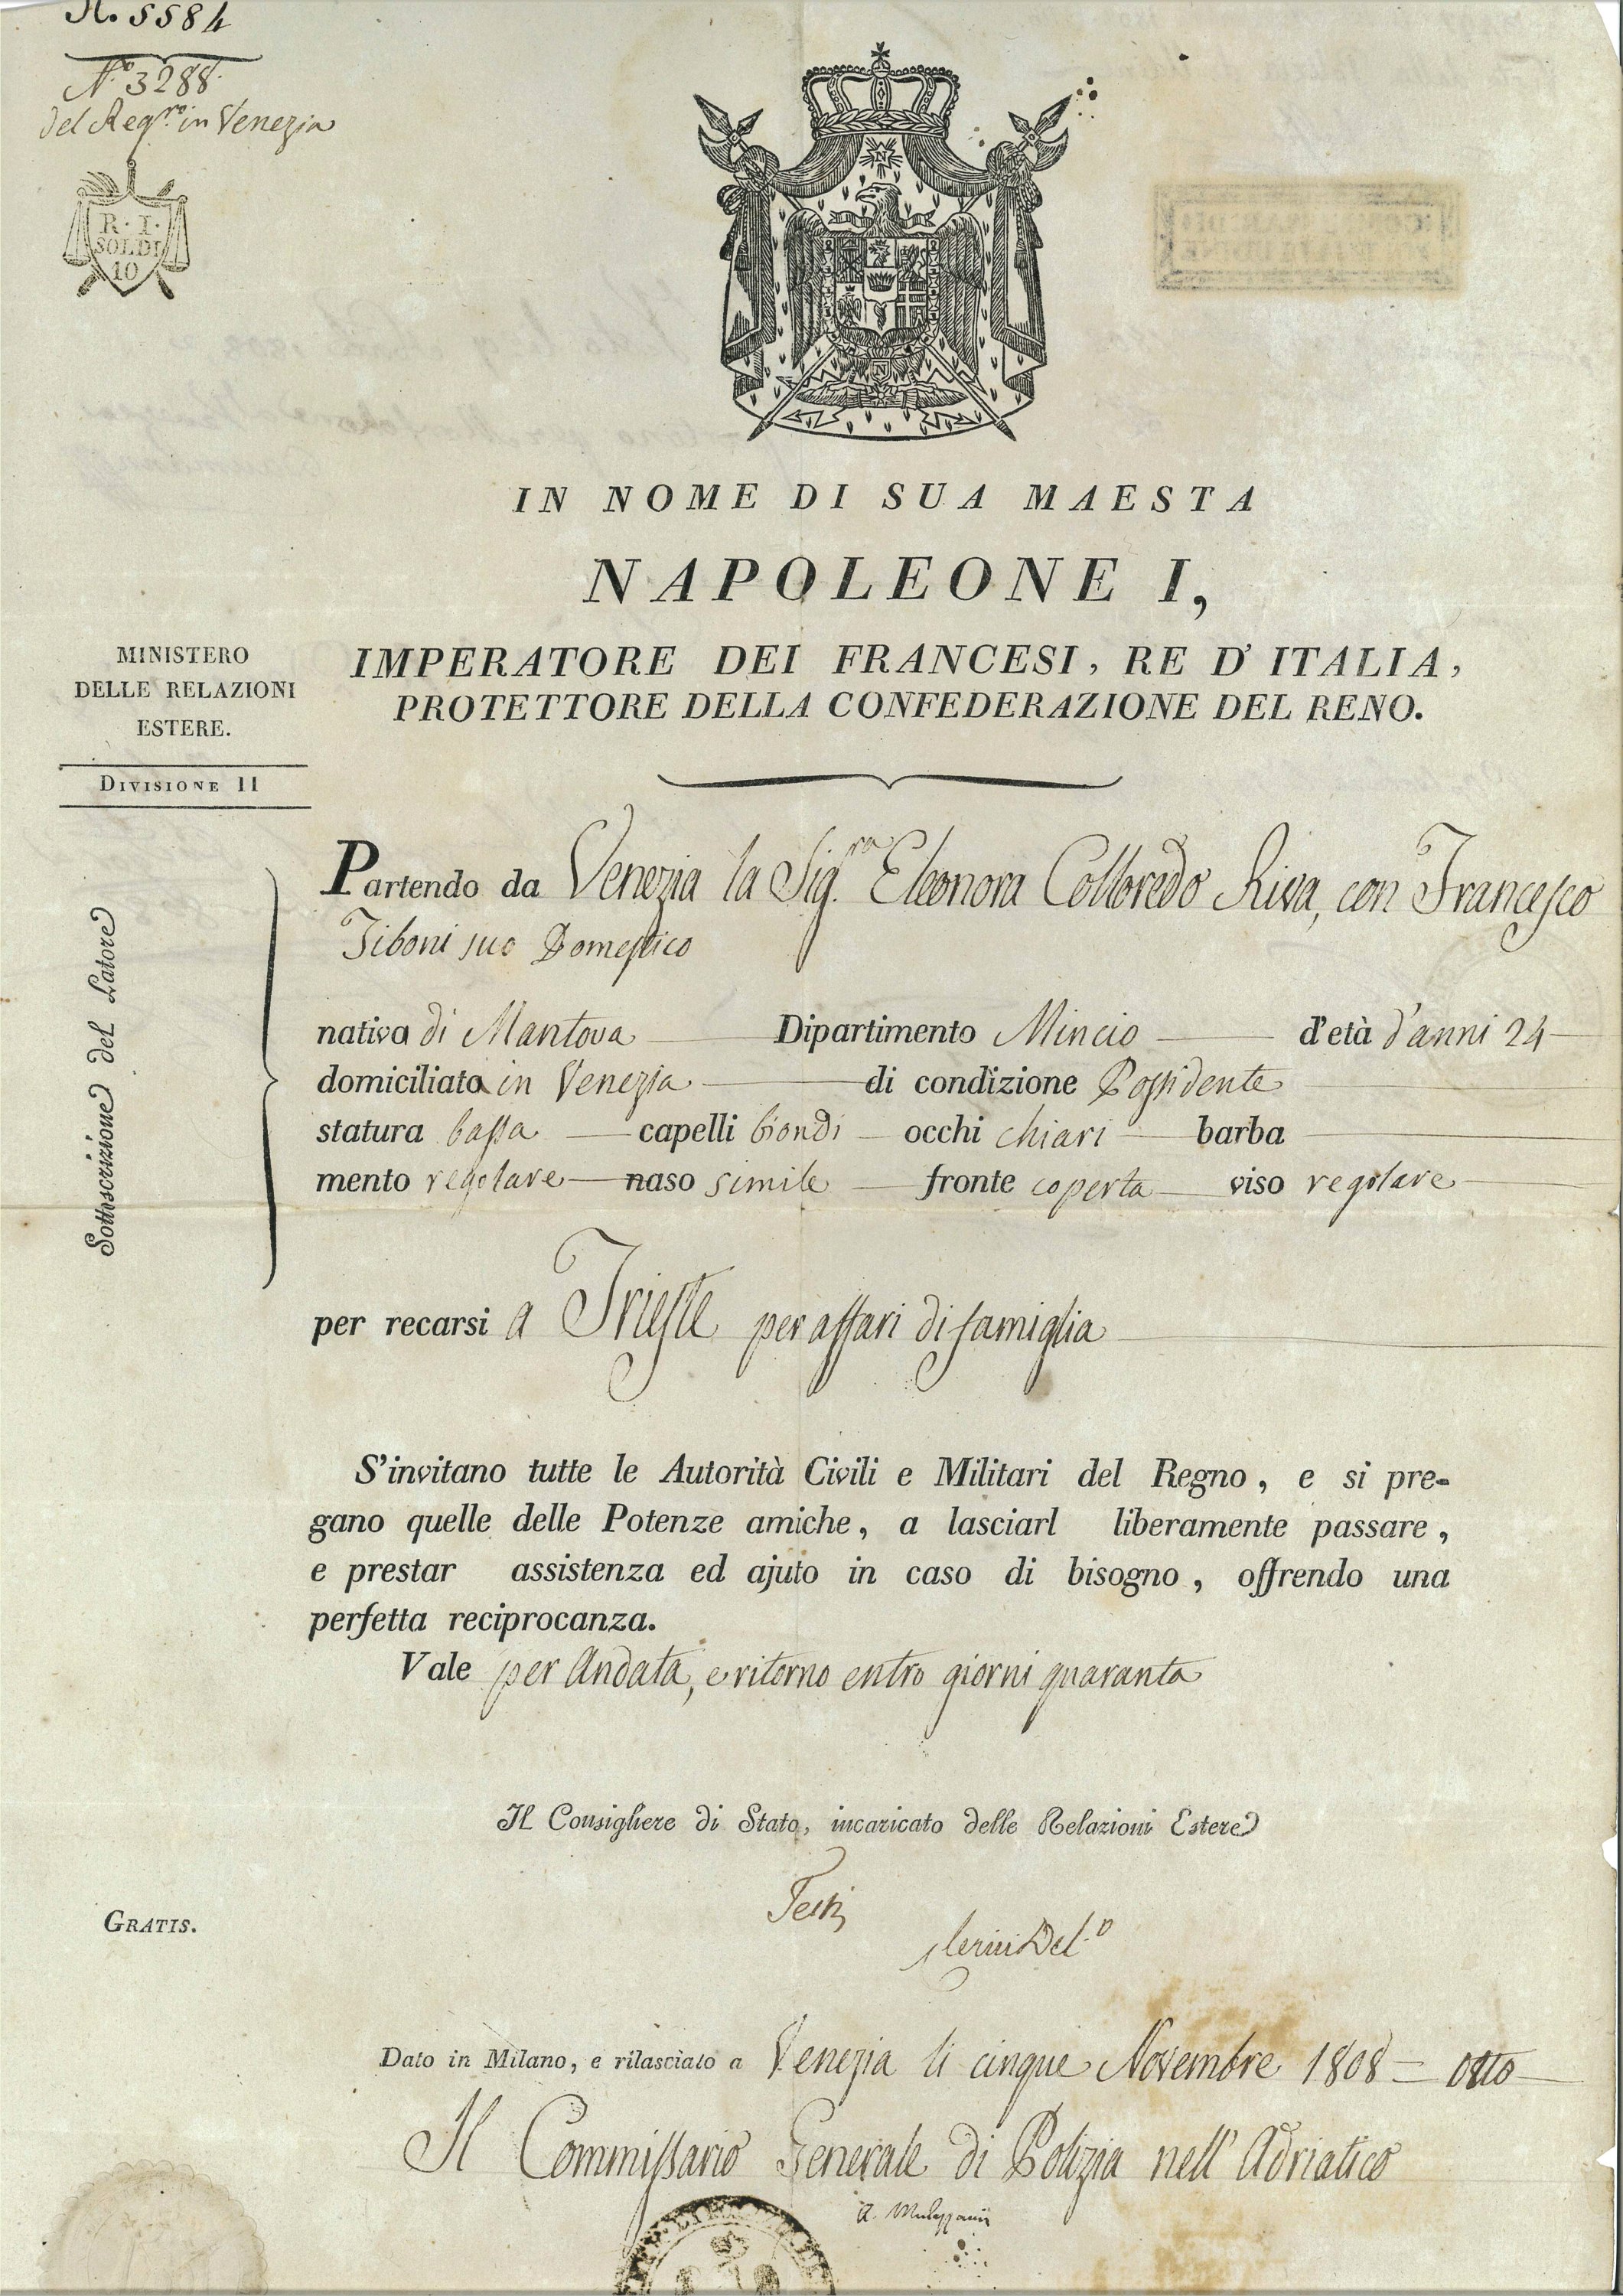 N. 5584
N.° 3288
del Reg.ro in Venezia
R. I.
SOLDI
10
IN NOME DI SUA MAESTA
NAPOLEONE I,
IMPERATORE DEI FRANCESI, RE D'ITALIA,
PROTETTORE DELLA CONFEDERAZIONE DEL RENO.
MINISTERO
DELLE RELAZIONI
ESTERE.
DIVISIONE II
Sottoscrizione del Latore
Partendo da Venezia la Sig.ra Eleonora Colloredo Riva, con Francesco
Tiboni suo Domestico
nativa di Mantova Dipartimento Mincio d'età d'anni 24
domiciliata in Venezia di condizione Possidente
statura bassa capelli biondi occhi chiari barba
mento regolare naso simile fronte coperta viso regolare
per recarsi a Trieste per affari di famiglia
S'invitano tutte le Autorità Civili e Militari del Regno, e si pre-
gano quelle delle Potenze amiche, a lasciarl liberamente passare,
e prestar assistenza ed ajuto in caso di bisogno, offrendo una
perfetta reciprocanza.
Vale per Andata, e ritorno entro giorni quaranta
Il Consigliere di Stato, incaricato delle Relazioni Estere
Testi
GRATIS.
Dato in Milano, e rilasciato a Venezia li cinque Novembre 1808 = otto
Il Commissario Generale di Polizia nell'Adriatico